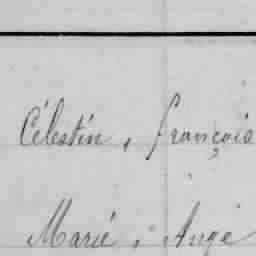 Célestin, françois
Marie, Ange